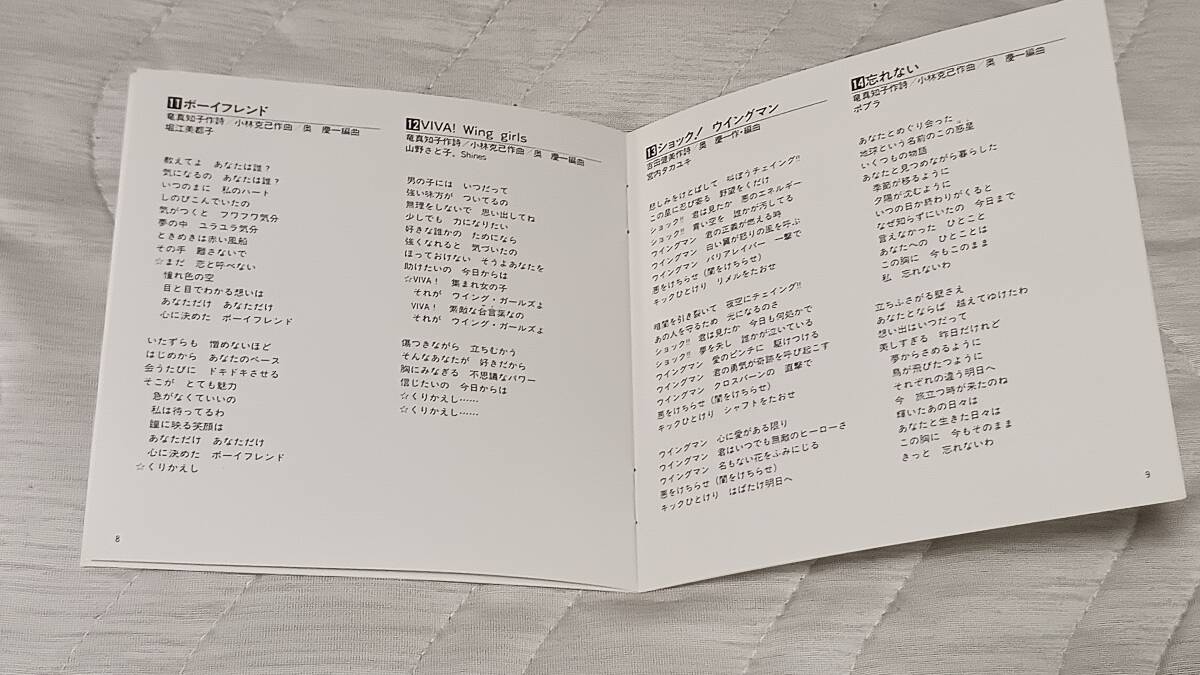 11 ボーイフレンド
竜真知子作詩／小林克己作曲／奥 慶一編曲
堀江美都子
教えてよ あなたは誰?
気になるの あなたは誰?
いつのまに 私のハート
しのびこんでいたの
気がつくと フワフワ気分
夢の中 ユラユラ気分
ときめきは赤い風船
その手 離さないで
☆まだ 恋と呼べない
憧れ色の空
目と目でわかる想いは
あなただけ あなただけ
心に決めた ボーイフレンド
いたずらも 憎めないほど
はじめから あなたのペース
会うたびに ドキドキさせる
そこが とても魅力
急がなくていいの
私は待ってるわ
瞳に映る笑顔は
あなただけ あなただけ
心に決めた ボーイフレンド
☆くりかえし
8
12 VIVA! Wing girls
竜真知子作詩／小林克己作曲／奥 慶一編曲
山野さと子、Shines
男の子には いつだって
強い味方が ついてるの
無理をしないで 思い出してね
少しでも 力になりたい
好きな誰かの ためになら
強くなれると 気づいたの
ほっておけない そうよあなたを
助けたいの 今日からは
☆VIVA! 集まれ女の子
それが ウイング・ガールズよ
VIVA! 素敵な合言葉なの
それが ウイング・ガールズよ
傷つきながら 立ちむかう
そんなあなたが 好きだから
胸にみなぎる 不思議なパワー
信じたいの 今日からは
☆くりかえし……
☆くりかえし……
13 ショック! ウイングマン
吉田健美作詩／奥 慶一作・編曲
宮内タカユキ
悲しみをけとばして 叫ぼうチェイング!!
この星に忍び寄る 野望をくだけ
ショック!! 君は見たか 悪のエネルギー
ショック!! 青い空を 誰かが汚してる
ウイングマン 君の正義が燃える時
ウイングマン 白い翼が怒りの風を呼ぶ
ウイングマン バリアレイバー 一撃で
悪をけちらせ (闇をけちらせ)
キックひとけり リメルをたおせ
暗闇を引き裂いて 夜空にチェイング!!
あの人を守るため 光になるのさ
ショック!! 君は見たか 今日も何処かで
ショック!! 夢を失し 誰かが泣いている
ウイングマン 愛のピンチに 駆けつける
ウイングマン 君の勇気が奇跡を呼び起こす
ウイングマン クロスバーンの 直撃で
悪をけちらせ (闇をけちらせ)
キックひとけり シャフトをたおせ
ウイングマン 心に愛がある限り
ウイングマン 君はいつでも無敵のヒーローさ
ウイングマン 名もない花をふみにじる
悪をけちらせ (闇をけちらせ)
キックひとけり はばたけ明日へ
14 忘れない
竜真知子作詩／小林克己作曲／奥 慶一編曲
ポプラ
あなたとめぐり会った
地球という名前のこの惑星
いくつもの物語
あなたと見つめながら暮らした
季節が移るように
夕陽が沈むように
いつの日か終わりがくると
なぜ知らずにいたの 今日まで
言えなかった ひとこと
あなたへの ひとことは
この胸に 今もこのまま
私 忘れないわ
立ちふさがる壁さえ
あなたとならば 越えてゆけたわ
想い出はいつだって
美しすぎる 昨日だけれど
夢からさめるように
鳥が飛びたつように
それぞれの違う明日へ
今 旅立つ時が来たのね
輝いたあの日々は
あなたと生きた日々は
この胸に 今もそのまま
きっと 忘れないわ
9